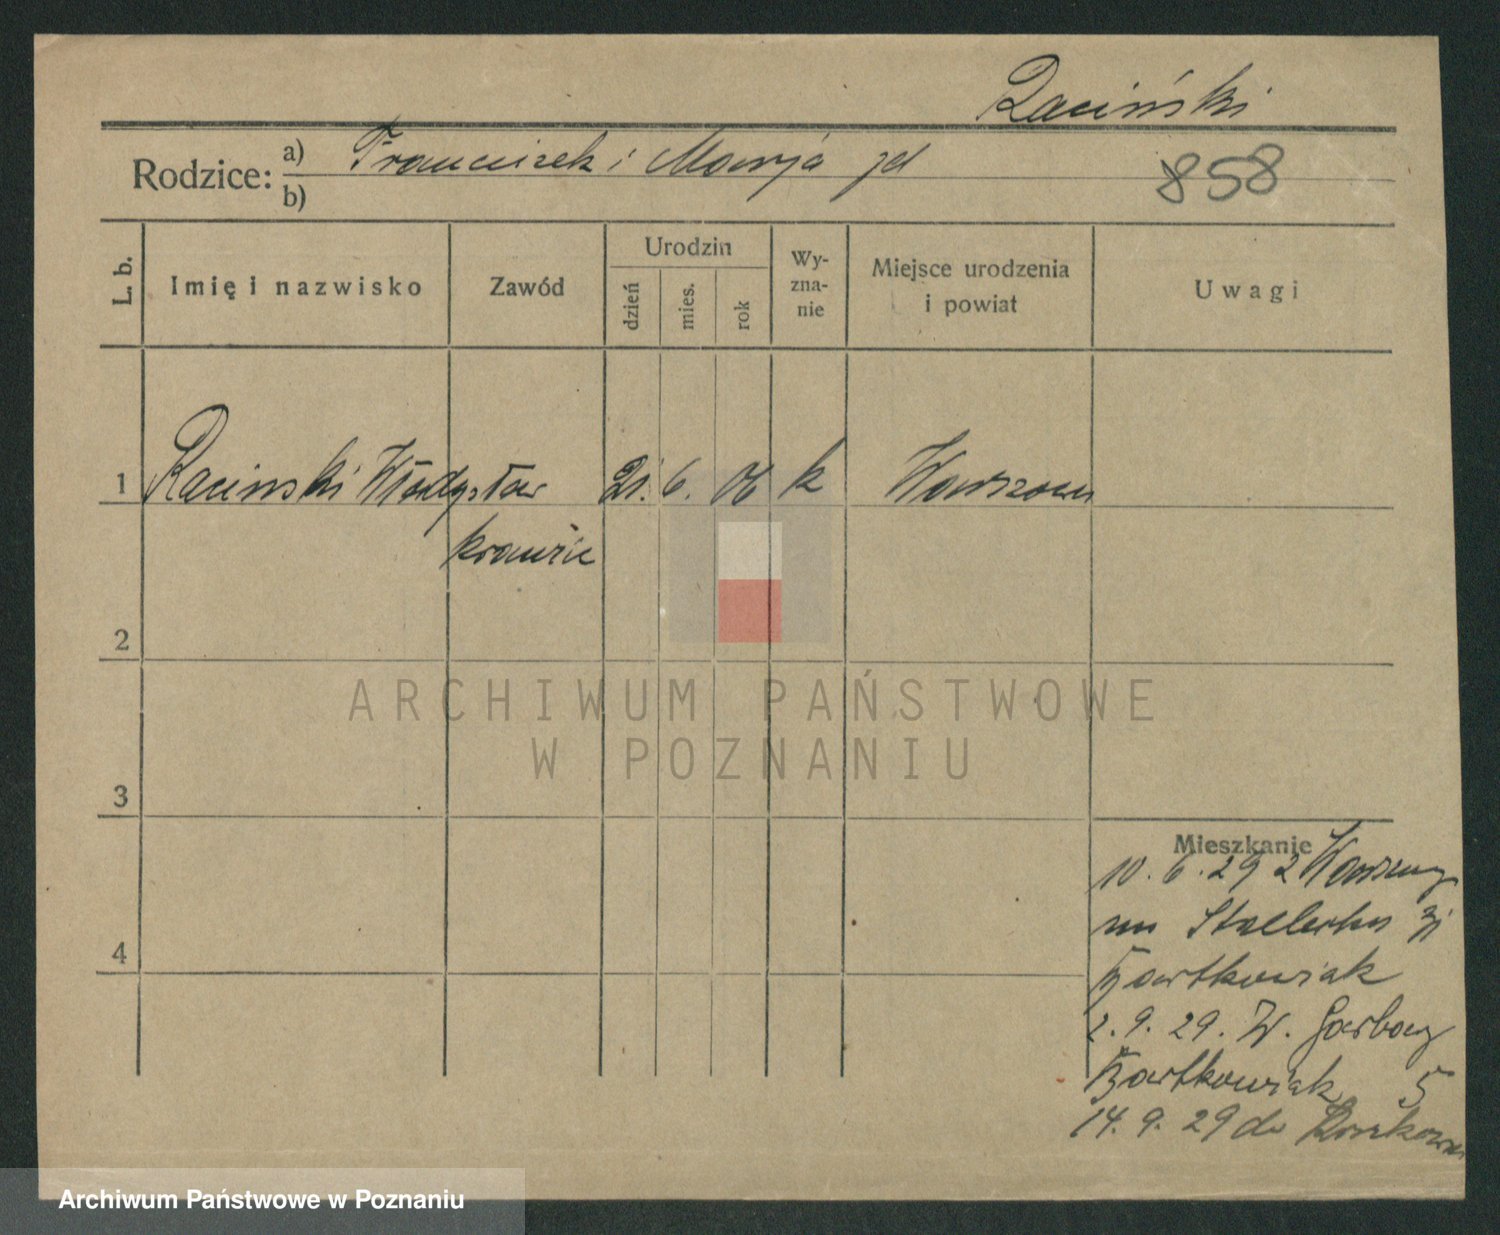 Raciński
Rodzice: a) Franciszek i Marja jd
b)
858
L. b.
Imię i nazwisko
Zawód
Urodzin
dzień
mies.
rok
Wy-
zna-
nie
Miejsce urodzenia
i powiat
Uwagi
1 Racinski Władysław 21. 6. 06 k Warszawa
krawiec
2
3
4
ARCHIWUM PAŃSTWOWE
W POZNANIU
Mieszkanie
10. 6. 29 z Warszawy
na
Bartkowiak
2. 9. 29. W. Garbary
Bartkowiak 5
14. 9. 29 do
Archiwum Państwowe w Poznaniu